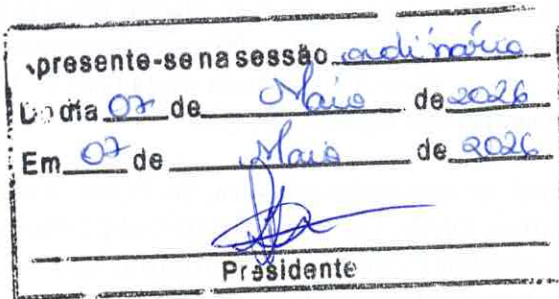 presente-se na sessão ordinária
Do dia 07 de Maio de 2026
Em 07 de Maio de 2026
Presidente